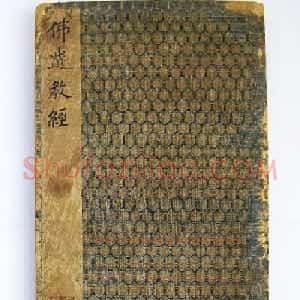 佛遺教經
Shufazidao.com